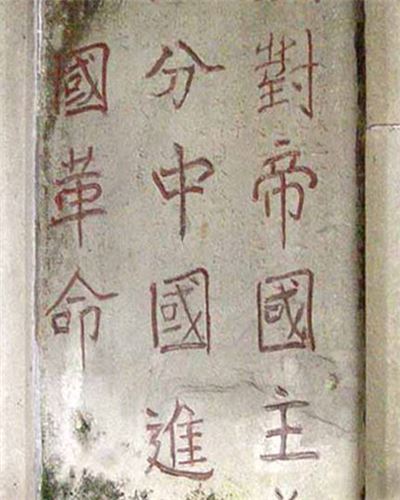 對帝國主
分中國進
國革命